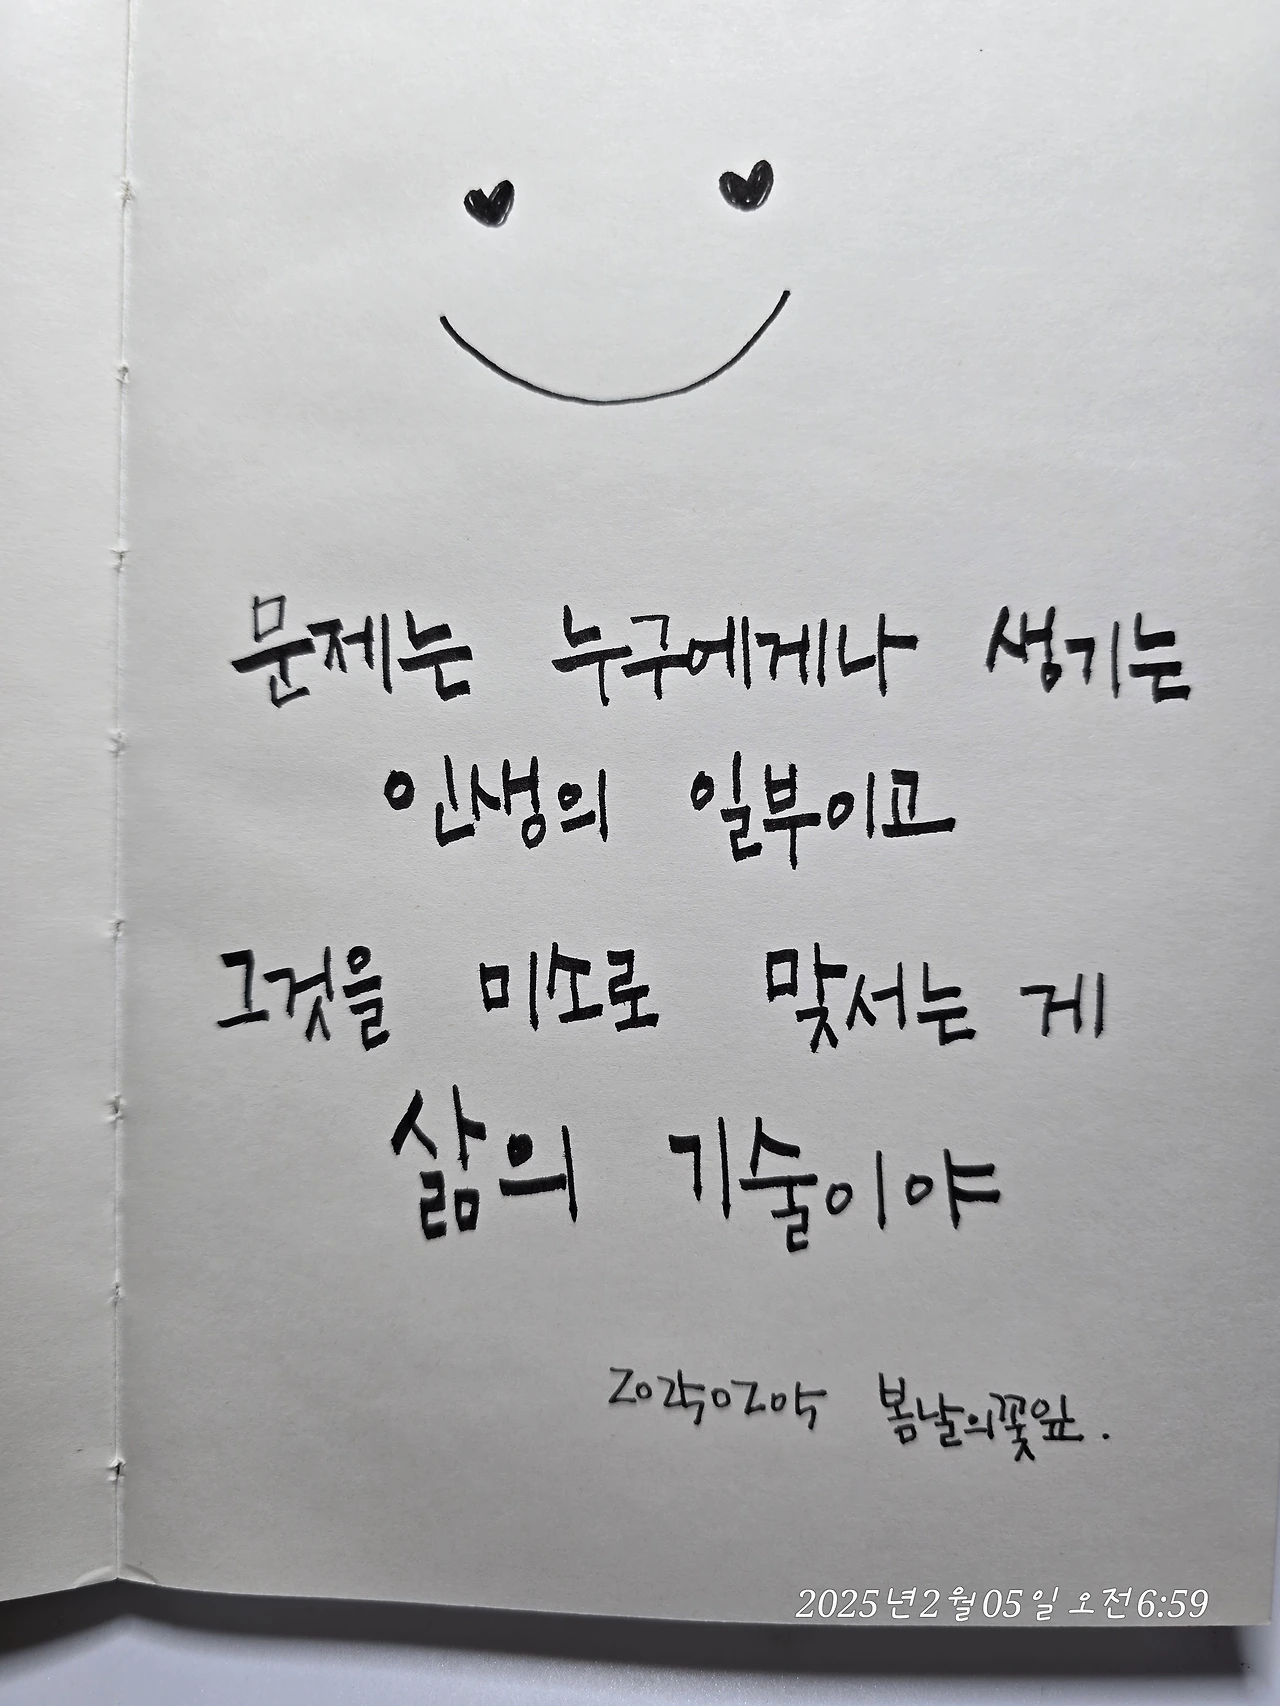 문제는 누구에게나 생기는
인생의 일부이고
그것을 미소로 맞서는 게
삶의 기술이야
20250205 봄날의꽃잎.
2025년2월05일 오전6:59